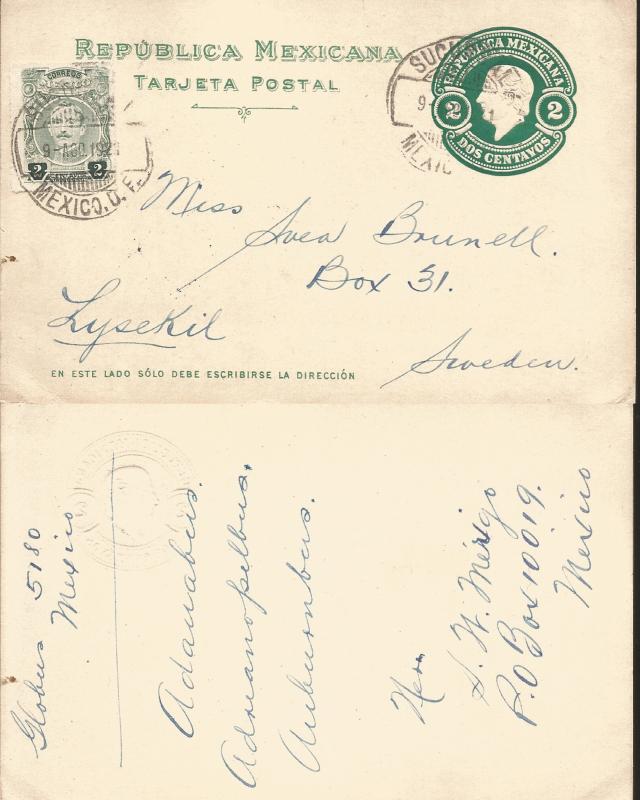 REPÚBLICA MEXICANA
TARJETA POSTAL
CORREOS
2 2
9-AGO.19
MEXICO, D.F.
SUC
9-
MEXIC
REPÚBLICA MEXICANA
2 2
DOS CENTAVOS
Miss Svea Brunell.
Box 31.
Lysekil
Sweden.
EN ESTE LADO SÓLO DEBE ESCRIBIRSE LA DIRECCIÓN
Globus 5180
Mexico
Adanabeis.
Adrianopelbus.
Auburnbus.
New
S. W. Merigo
P.O Box 10019.
Mexico